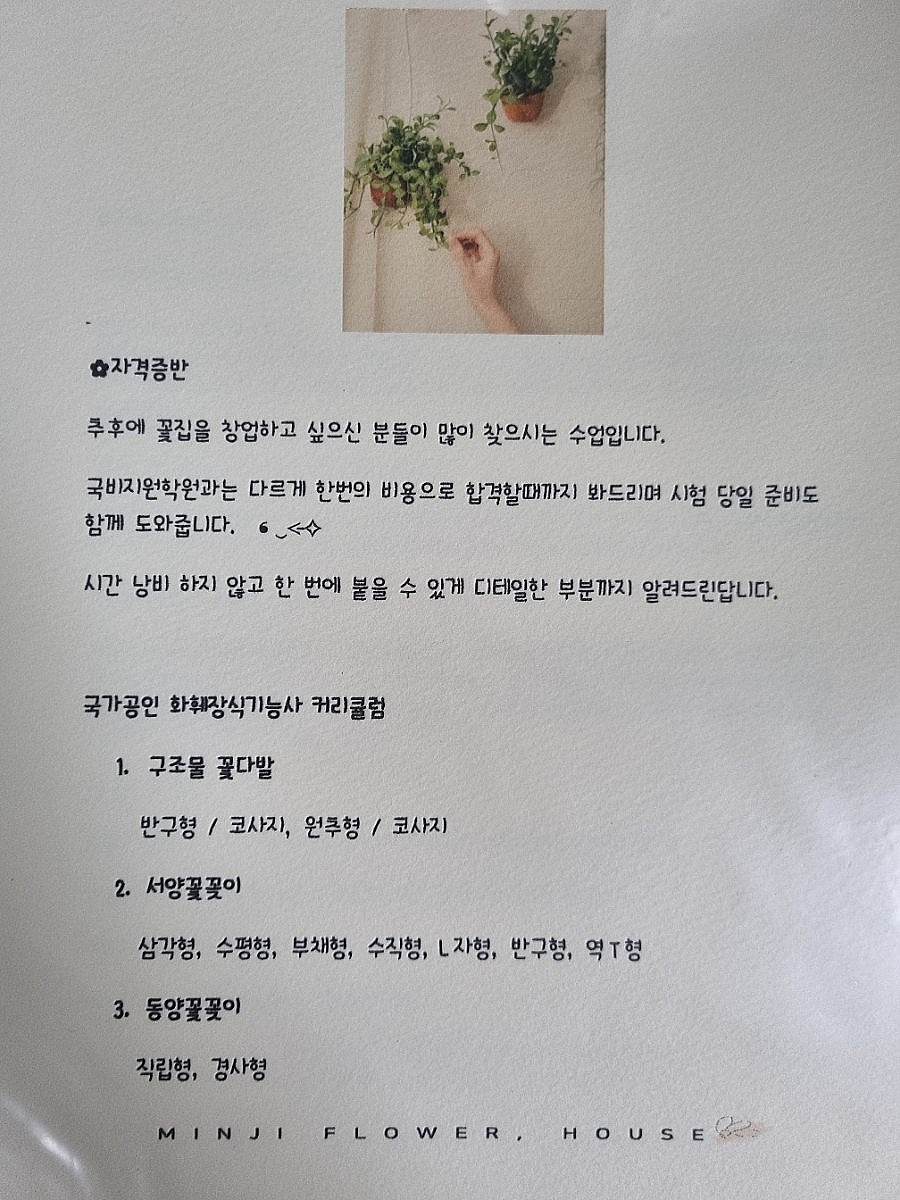 ✿자격증반
추후에 꽃집을 창업하고 싶으신 분들이 많이 찾으시는 수업입니다.
국비지원학원과는 다르게 한번의 비용으로 합격할때까지 봐드리며 시험 당일 준비도
함께 도와줍니다. ɞ ‿<✧
시간 낭비 하지 않고 한 번에 붙을 수 있게 디테일한 부분까지 알려드린답니다.
국가공인 화훼장식기능사 커리큘럼
1. 구조물 꽃다발
반구형 / 코사지, 원추형 / 코사지
2. 서양꽃꽂이
삼각형, 수평형, 부채형, 수직형, L자형, 반구형, 역T형
3. 동양꽃꽂이
직립형, 경사형
MINJI FLOWER, HOUSE